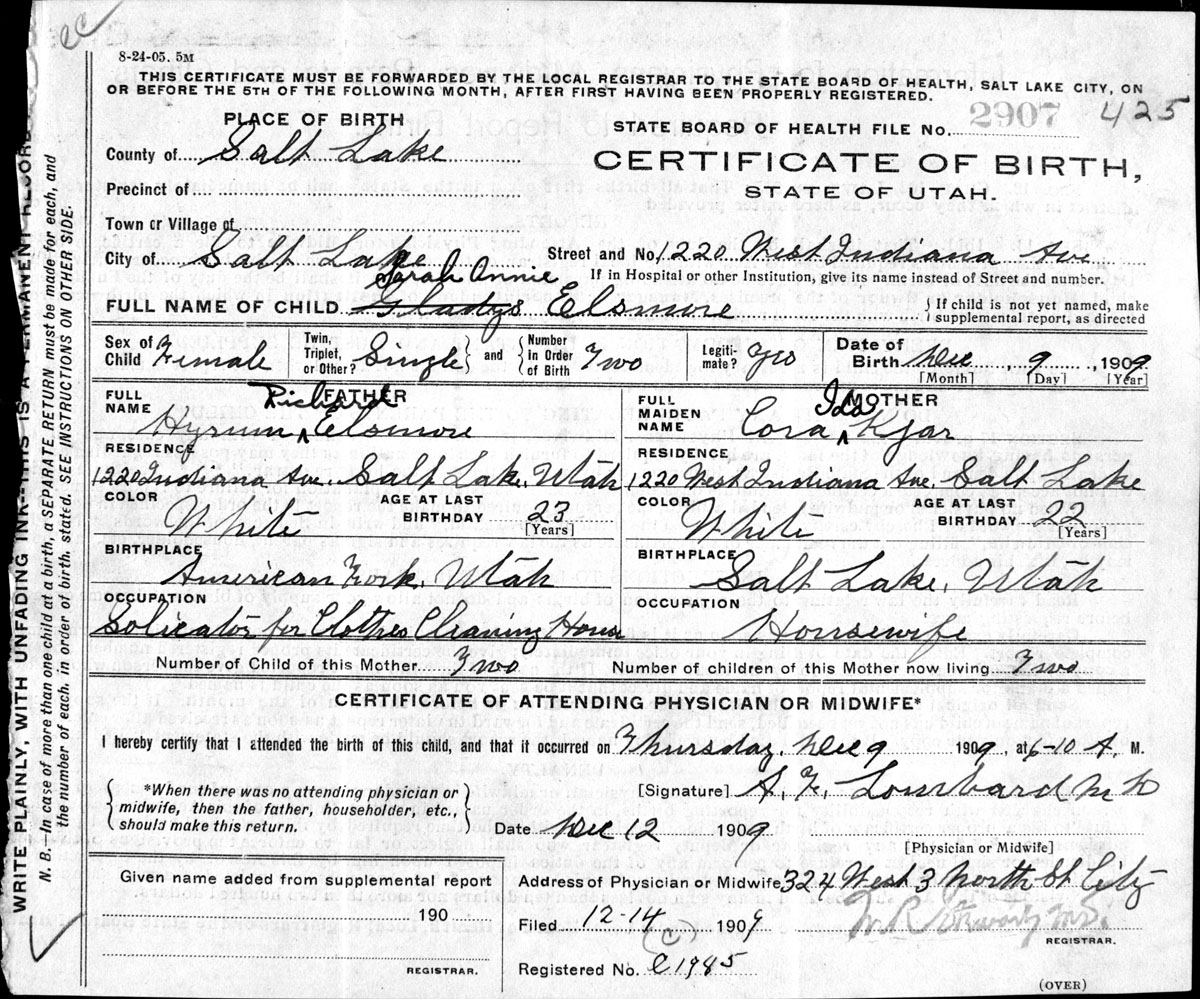 ec
8-24-05. 5M
THIS CERTIFICATE MUST BE FORWARDED BY THE LOCAL REGISTRAR TO THE STATE BOARD OF HEALTH, SALT LAKE CITY, ON
OR BEFORE THE 5TH OF THE FOLLOWING MONTH, AFTER FIRST HAVING BEEN PROPERLY REGISTERED.
PLACE OF BIRTH
STATE BOARD OF HEALTH FILE NO. 2907 425
County of Salt Lake
CERTIFICATE OF BIRTH,
STATE OF UTAH.
Precinct of
Town or Village of
City of Salt Lake Street and No. 1220 West Indiana Ave
If in Hospital or other Institution, give its name instead of Street and number.
Sarah Annie
FULL NAME OF CHILD Gladys Elsmore { If child is not yet named, make
supplemental report, as directed
Sex of Child Female Twin, Triplet, or Other? Single } and { Number in Order of Birth Two Legiti-mate? Yes Date of Birth Dec, 9, 1909
[Month] [Day] [Year]
FATHER
FULL NAME Hyrum Richard Elsmore
RESIDENCE
1220 Indiana Ave. Salt Lake, Utah
COLOR White AGE AT LAST BIRTHDAY 23
[Years]
BIRTHPLACE
American Fork, Utah
OCCUPATION
Solicator for Clothes Cleaning House
MOTHER
FULL MAIDEN NAME Cora Ida Kjar
RESIDENCE
1220 West Indiana Ave. Salt Lake
COLOR White AGE AT LAST BIRTHDAY 22
[Years]
BIRTHPLACE
Salt Lake, Utah
OCCUPATION
Housewife
Number of Child of this Mother Two Number of children of this Mother now living Two
CERTIFICATE OF ATTENDING PHYSICIAN OR MIDWIFE*
I hereby certify that I attended the birth of this child, and that it occurred on Thursday, Dec 9 1909, at 6-10 A. M.
{ *When there was no attending physician or
midwife, then the father, householder, etc.,
should make this return. }
[Signature] A. F. Lombard M D
Date Dec 12 1909
[Physician or Midwife]
Given name added from supplemental report
190
REGISTRAR.
Address of Physician or Midwife 324 West 3 North St City
Filed 12-14 1909
(c)
REGISTRAR.
Registered No. C1985
(OVER)
WRITE PLAINLY, WITH UNFADING INK-THIS IS A PERMANENT RECORD
N. B.—In case of more than one child at a birth, a SEPARATE RETURN must be made for each, and
the number of each, in order of birth, stated. SEE INSTRUCTIONS ON OTHER SIDE.